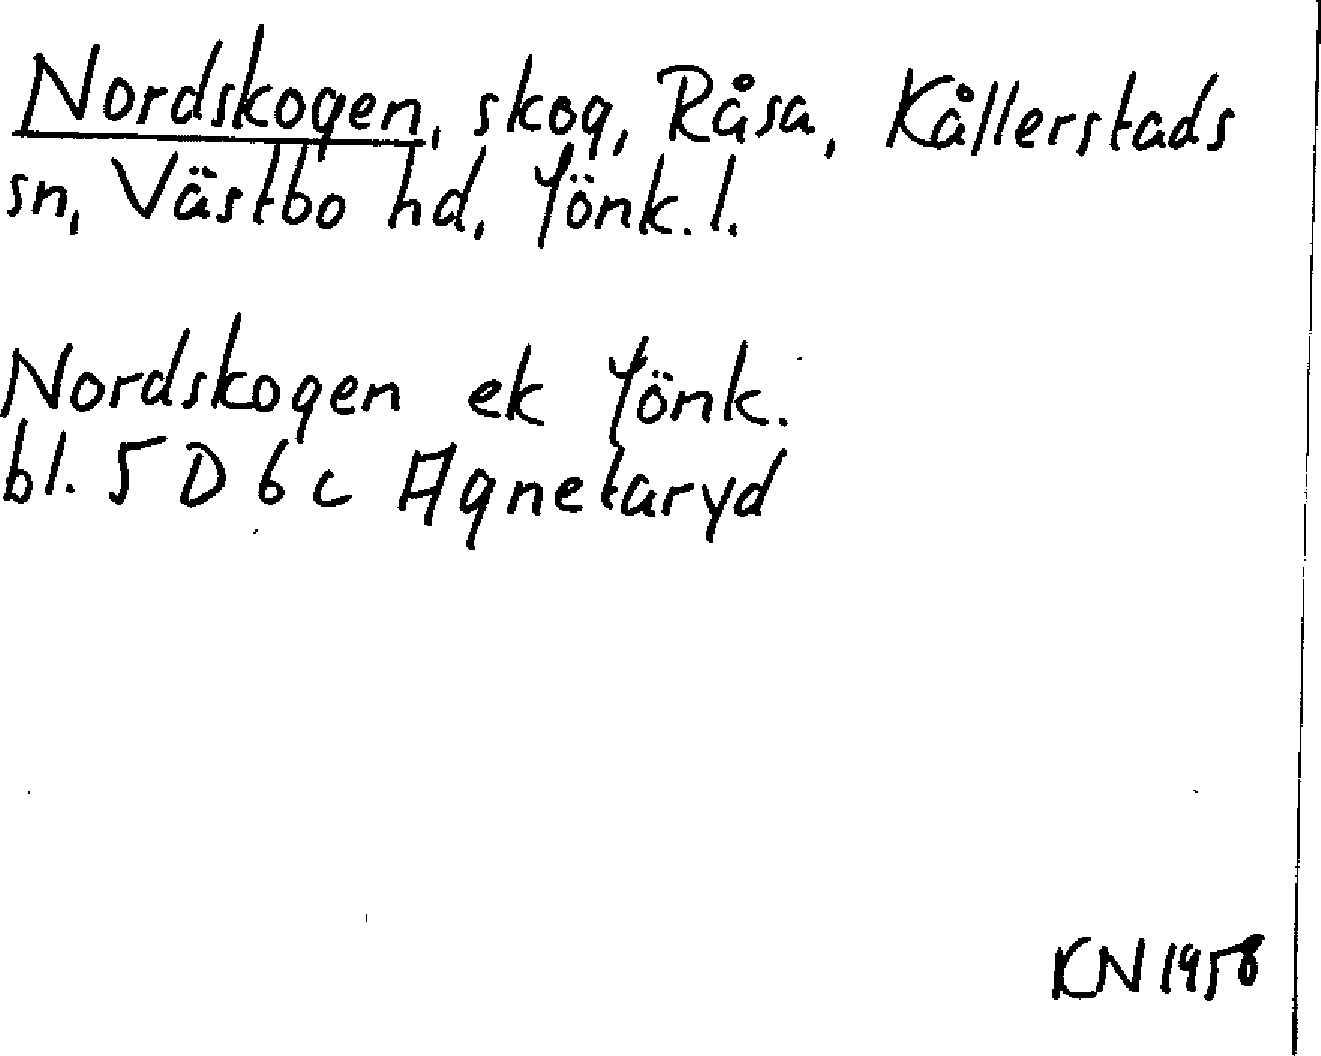 Nordskogen, skog, Råsa, Kållerstads
sn, Västbo hd, Jönk. l.
Nordskogen ek Jönk.
bl. 5 D 6 c Agnetaryd
KN 1958